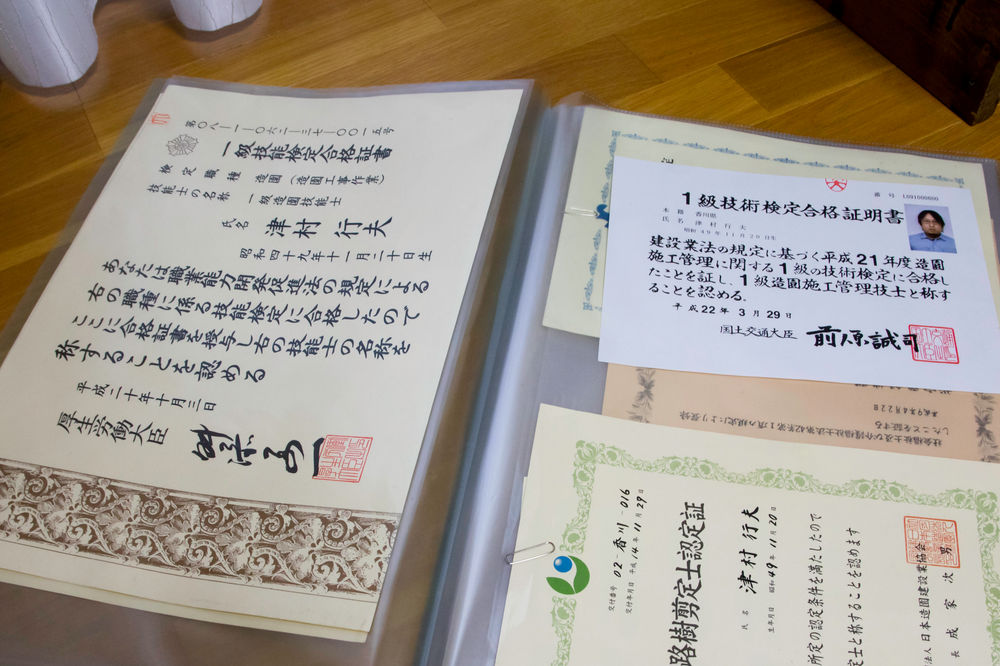 第〇八-一-〇六二-三七-〇〇一五号
一級技能検定合格証書
検定職種 造園(造園工事作業)
技能士の名称 一級造園技能士
氏名 津村 行夫
昭和四十九年十一月二十日生
あなたは職業能力開発促進法の規定による
右の職種に係る技能検定に合格したので
ここに合格証書を授与し右の技能士の名称を
称することを認める
平成二十年十月三日
厚生労働大臣
番号
1級技術検定合格証明書
本籍 香川県
氏名 津村 行夫
昭和49年11月20日生
建設業法の規定に基づく平成21年度造園
施工管理に関する1級の技術検定に合格し
たことを証し、1級造園施工管理技士と称す
ることを認める.
平成22年3月29日
国土交通大臣 前原誠司
平成9年4月22日
したことを証する
交付番号 02-香川-016
交付年月日 平成14年11月29日
路樹剪定士認定証
氏名 津村 行夫
生年月日 昭和49年11月20日
所定の認定条件を満たしたので
定士と称することを認めます
法人 日本造園建設業協会
長 成家 次男